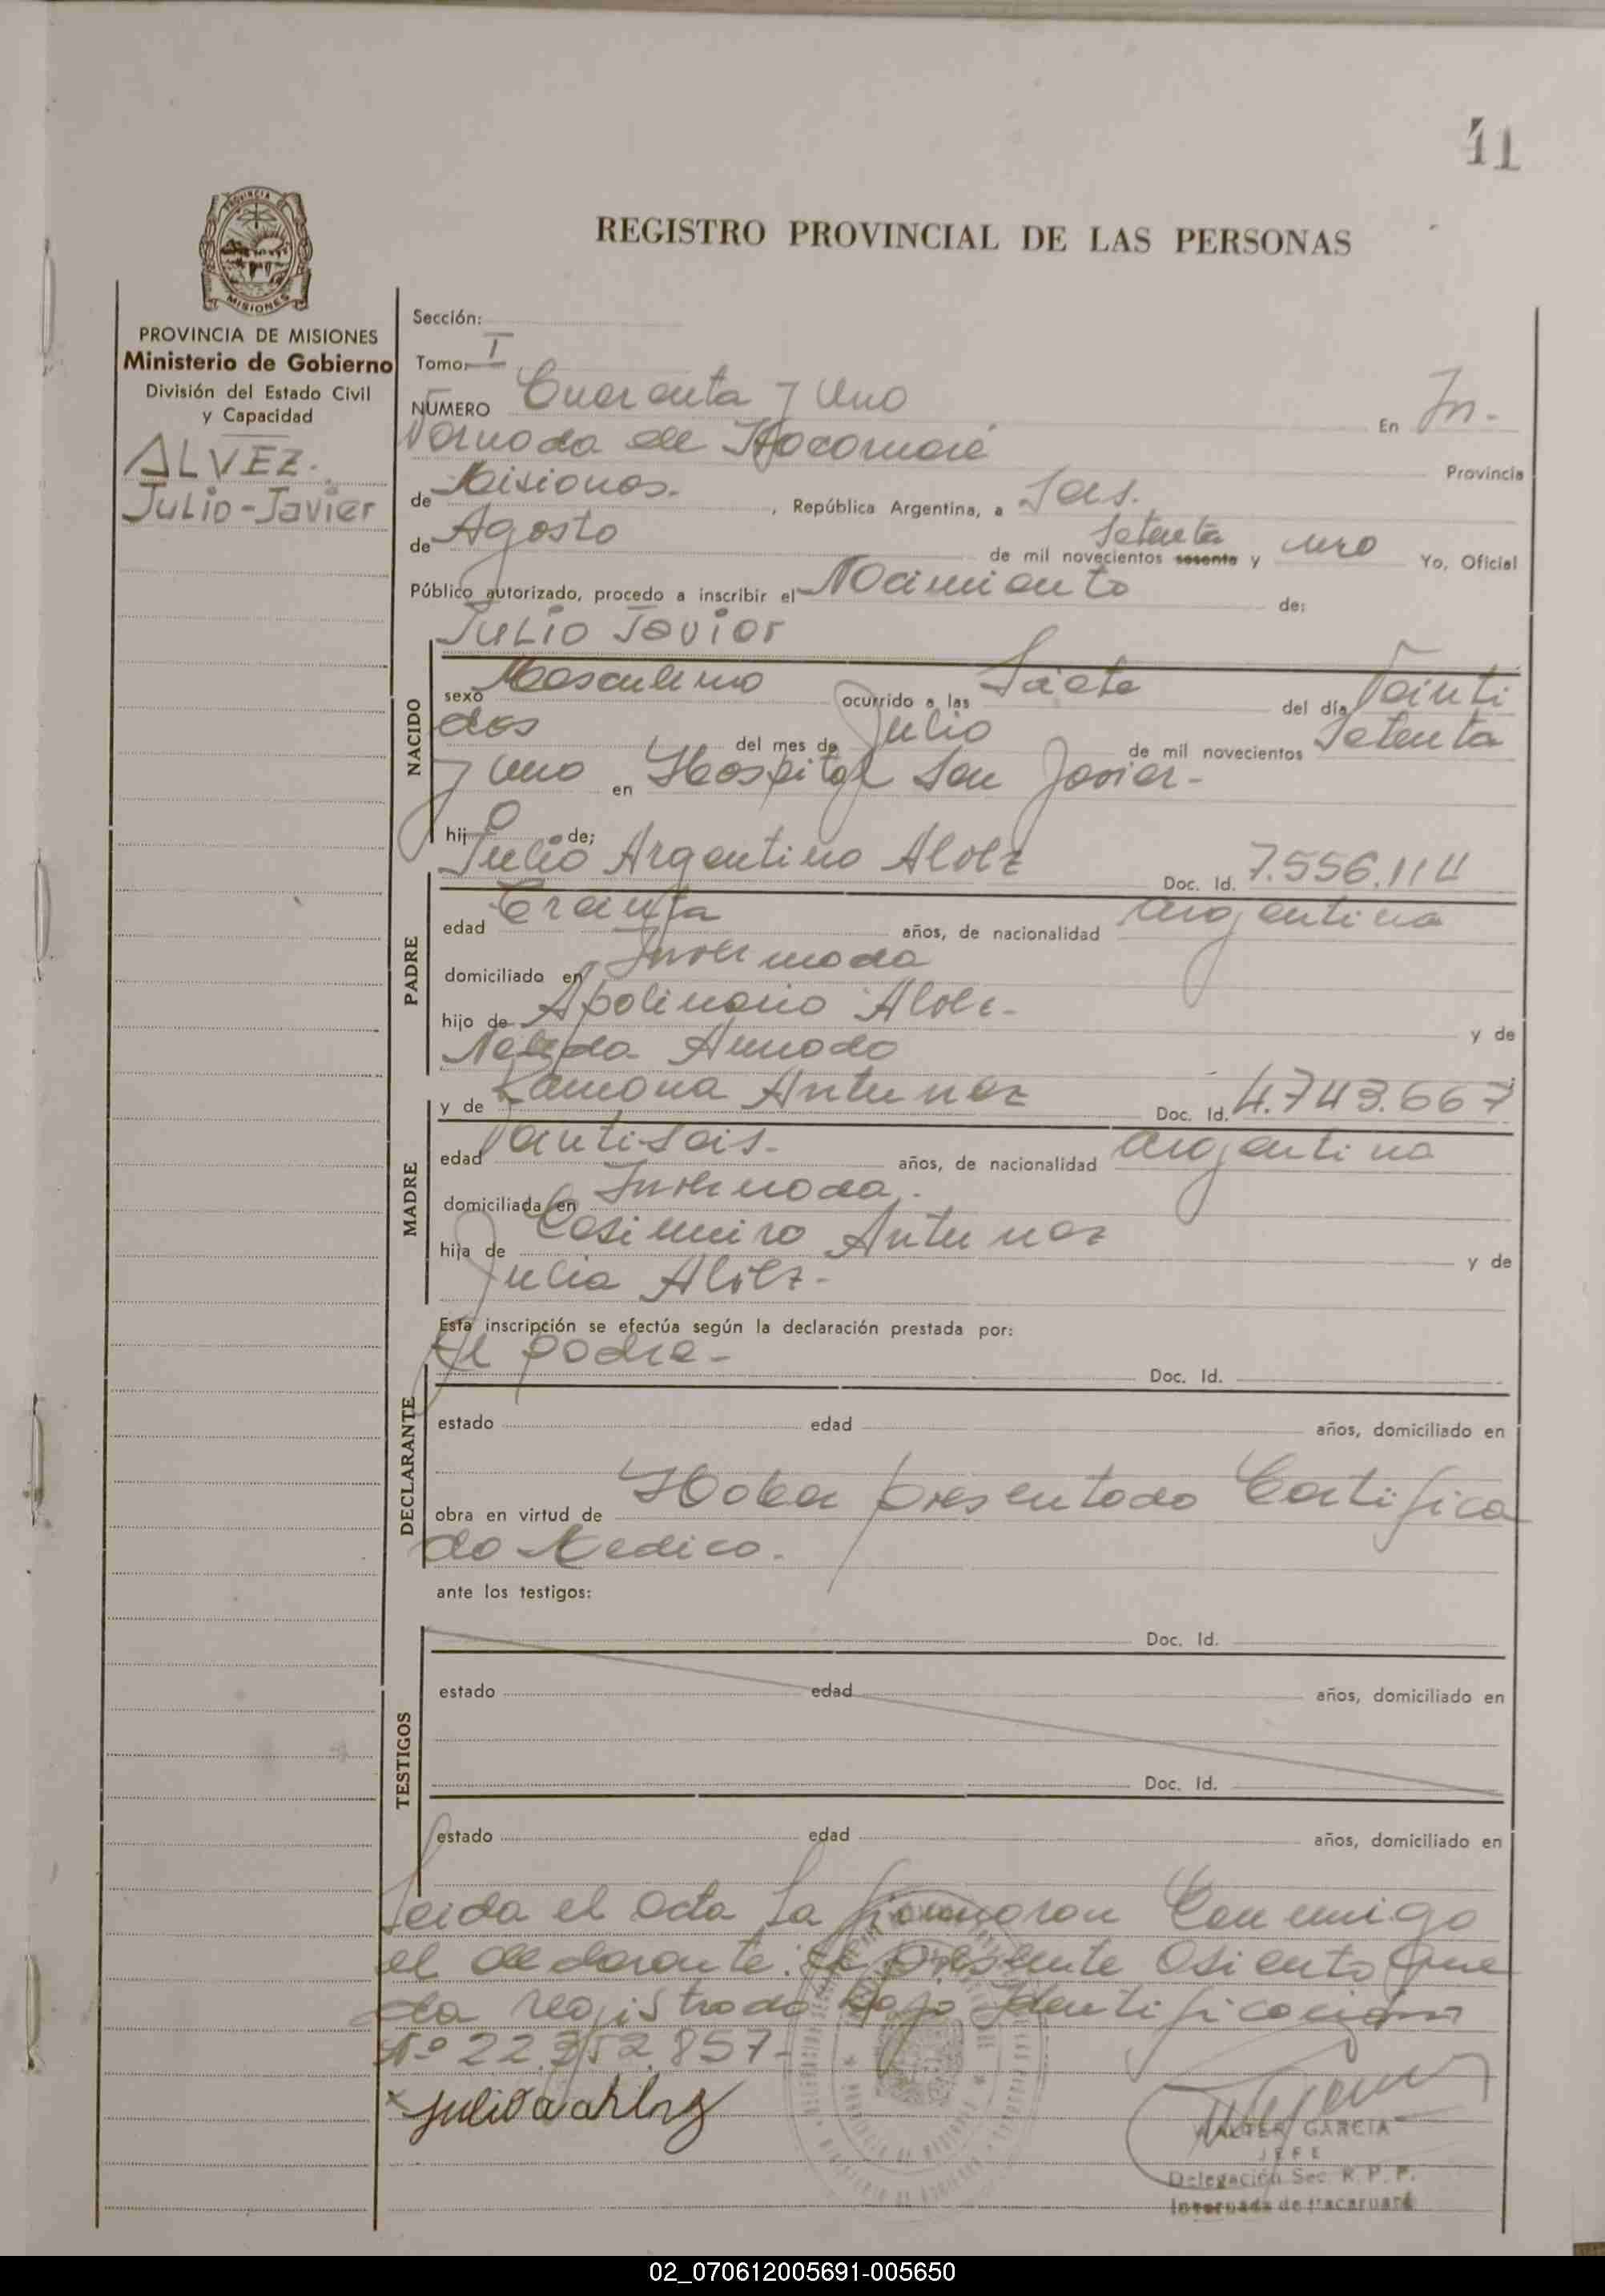 41
REGISTRO PROVINCIAL DE LAS PERSONAS
PROVINCIA DE MISIONES
MISIONES
PROVINCIA DE MISIONES
Ministerio de Gobierno
División del Estado Civil
y Capacidad
ALVEZ.
Julio-Javier
Sección:
Tomo: I
NUMERO Cuarenta y Uno En In-
vernada de Itacaruaré Provincia
de Misiones. , República Argentina, a Seis.
de Agosto de mil novecientos sesenta Setenta y uno Yo, Oficial
Público autorizado, procedo a inscribir el Nacimiento de:
Julio Javier
NACIDO
sexo Masculino ocurrido a las Siete del día Veinti
dos del mes de Julio de mil novecientos Setenta
y uno en Hospital San Javier-
hijo de:
Julio Argentino Alvez Doc. Id. 7.556.114
PADRE
edad Treinta años, de nacionalidad argentina
domiciliado en Invernada
hijo de Apolinario Alvez- y de
Nelida Amado
MADRE
y de Ramona Antunez Doc. Id. 4.743.667
edad Veintiseis- años, de nacionalidad argentina
domiciliada en Invernada.
hija de Casimiro Antunez y de
Julia Alvez-
Esta inscripción se efectúa según la declaración prestada por:
El padre- Doc. Id.
DECLARANTE
estado edad años, domiciliado en
obra en virtud de Haber presentado Certifica
do Medico.
ante los testigos:
Doc. Id.
TESTIGOS
estado edad años, domiciliado en
Doc. Id.
estado edad años, domiciliado en
Leida el acta la firmaron Conmigo
el declarante: El presente asiento que
da registrado bajo Identificación
Nº 22.352.857-
WALTER GARCIA
JEFE
Delegación Sec. R. P. P.
Invernada de Itacaruaré
02_070612005691-005650